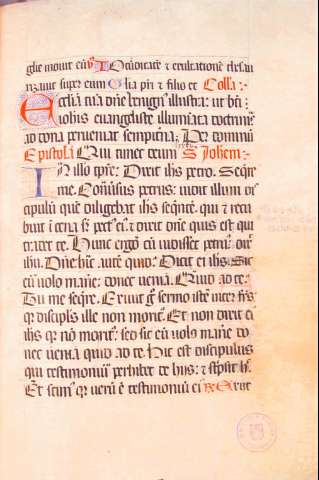 glie induit eū Iocūditatē ⁊ exultationē thesau
rizauit super eum Glia pri ⁊ filio et Colla
Ecclīam tuā dn̄e benignꝰ illustra: ut bt̄i
iohis euangeliste illuminata doctrinis
ad dona perueniat sempit̄na; Per dominū
Epistola Qui timet deum S Iohem:
In illo tpr̄e: Dixit ihs petro. Seq̄re
me. Cōuersus petrus: uidit illum di
scipulū quē diligebat ihs seq̄ntē. qui ⁊ recu
buit ī cena sr̄ pectꝰ eiꝰ. ⁊ dixit dn̄e quis est qui
tradet te. Hunc ergo cū uidisset petrus: dix̄
ihu. Dn̄e: hic autē quid: Dicit ei ihs. Sic
eū uolo manē: donec ueniā. Quid ad te.
Tu me seq̄re. Exiuit gͦ sermo iste inter fr̄s.
qr discipls ille non morit̄. Et non dixit ei
ihs qr nō morit̄: sed sic eū uolo manē do
nec ueniā quid ad te. Hic est discipulus
qui testimoniū perhibet de hiis: ⁊ sc̄psit h̄.
Et scimꝰ qr uerū ē testimoniū eiꝰ